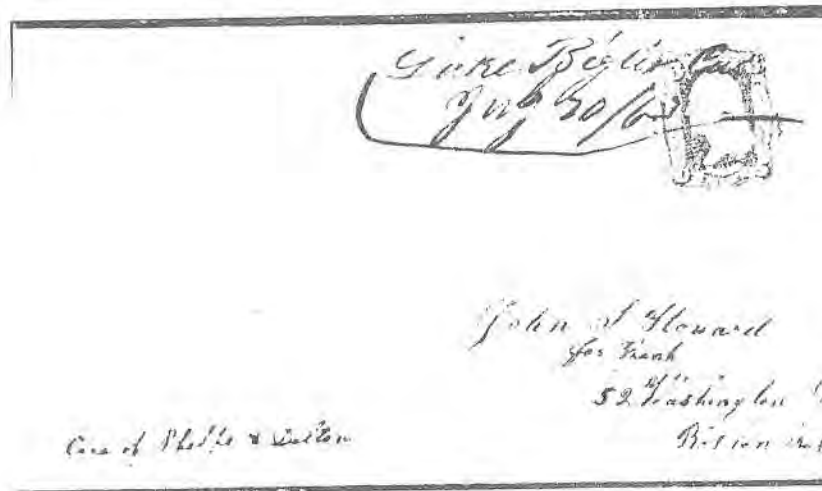 Lake Bigler Cal
July 30/63
John S Howard
for Frank
52 Washington
Boston
Care of Phelps & Dalton